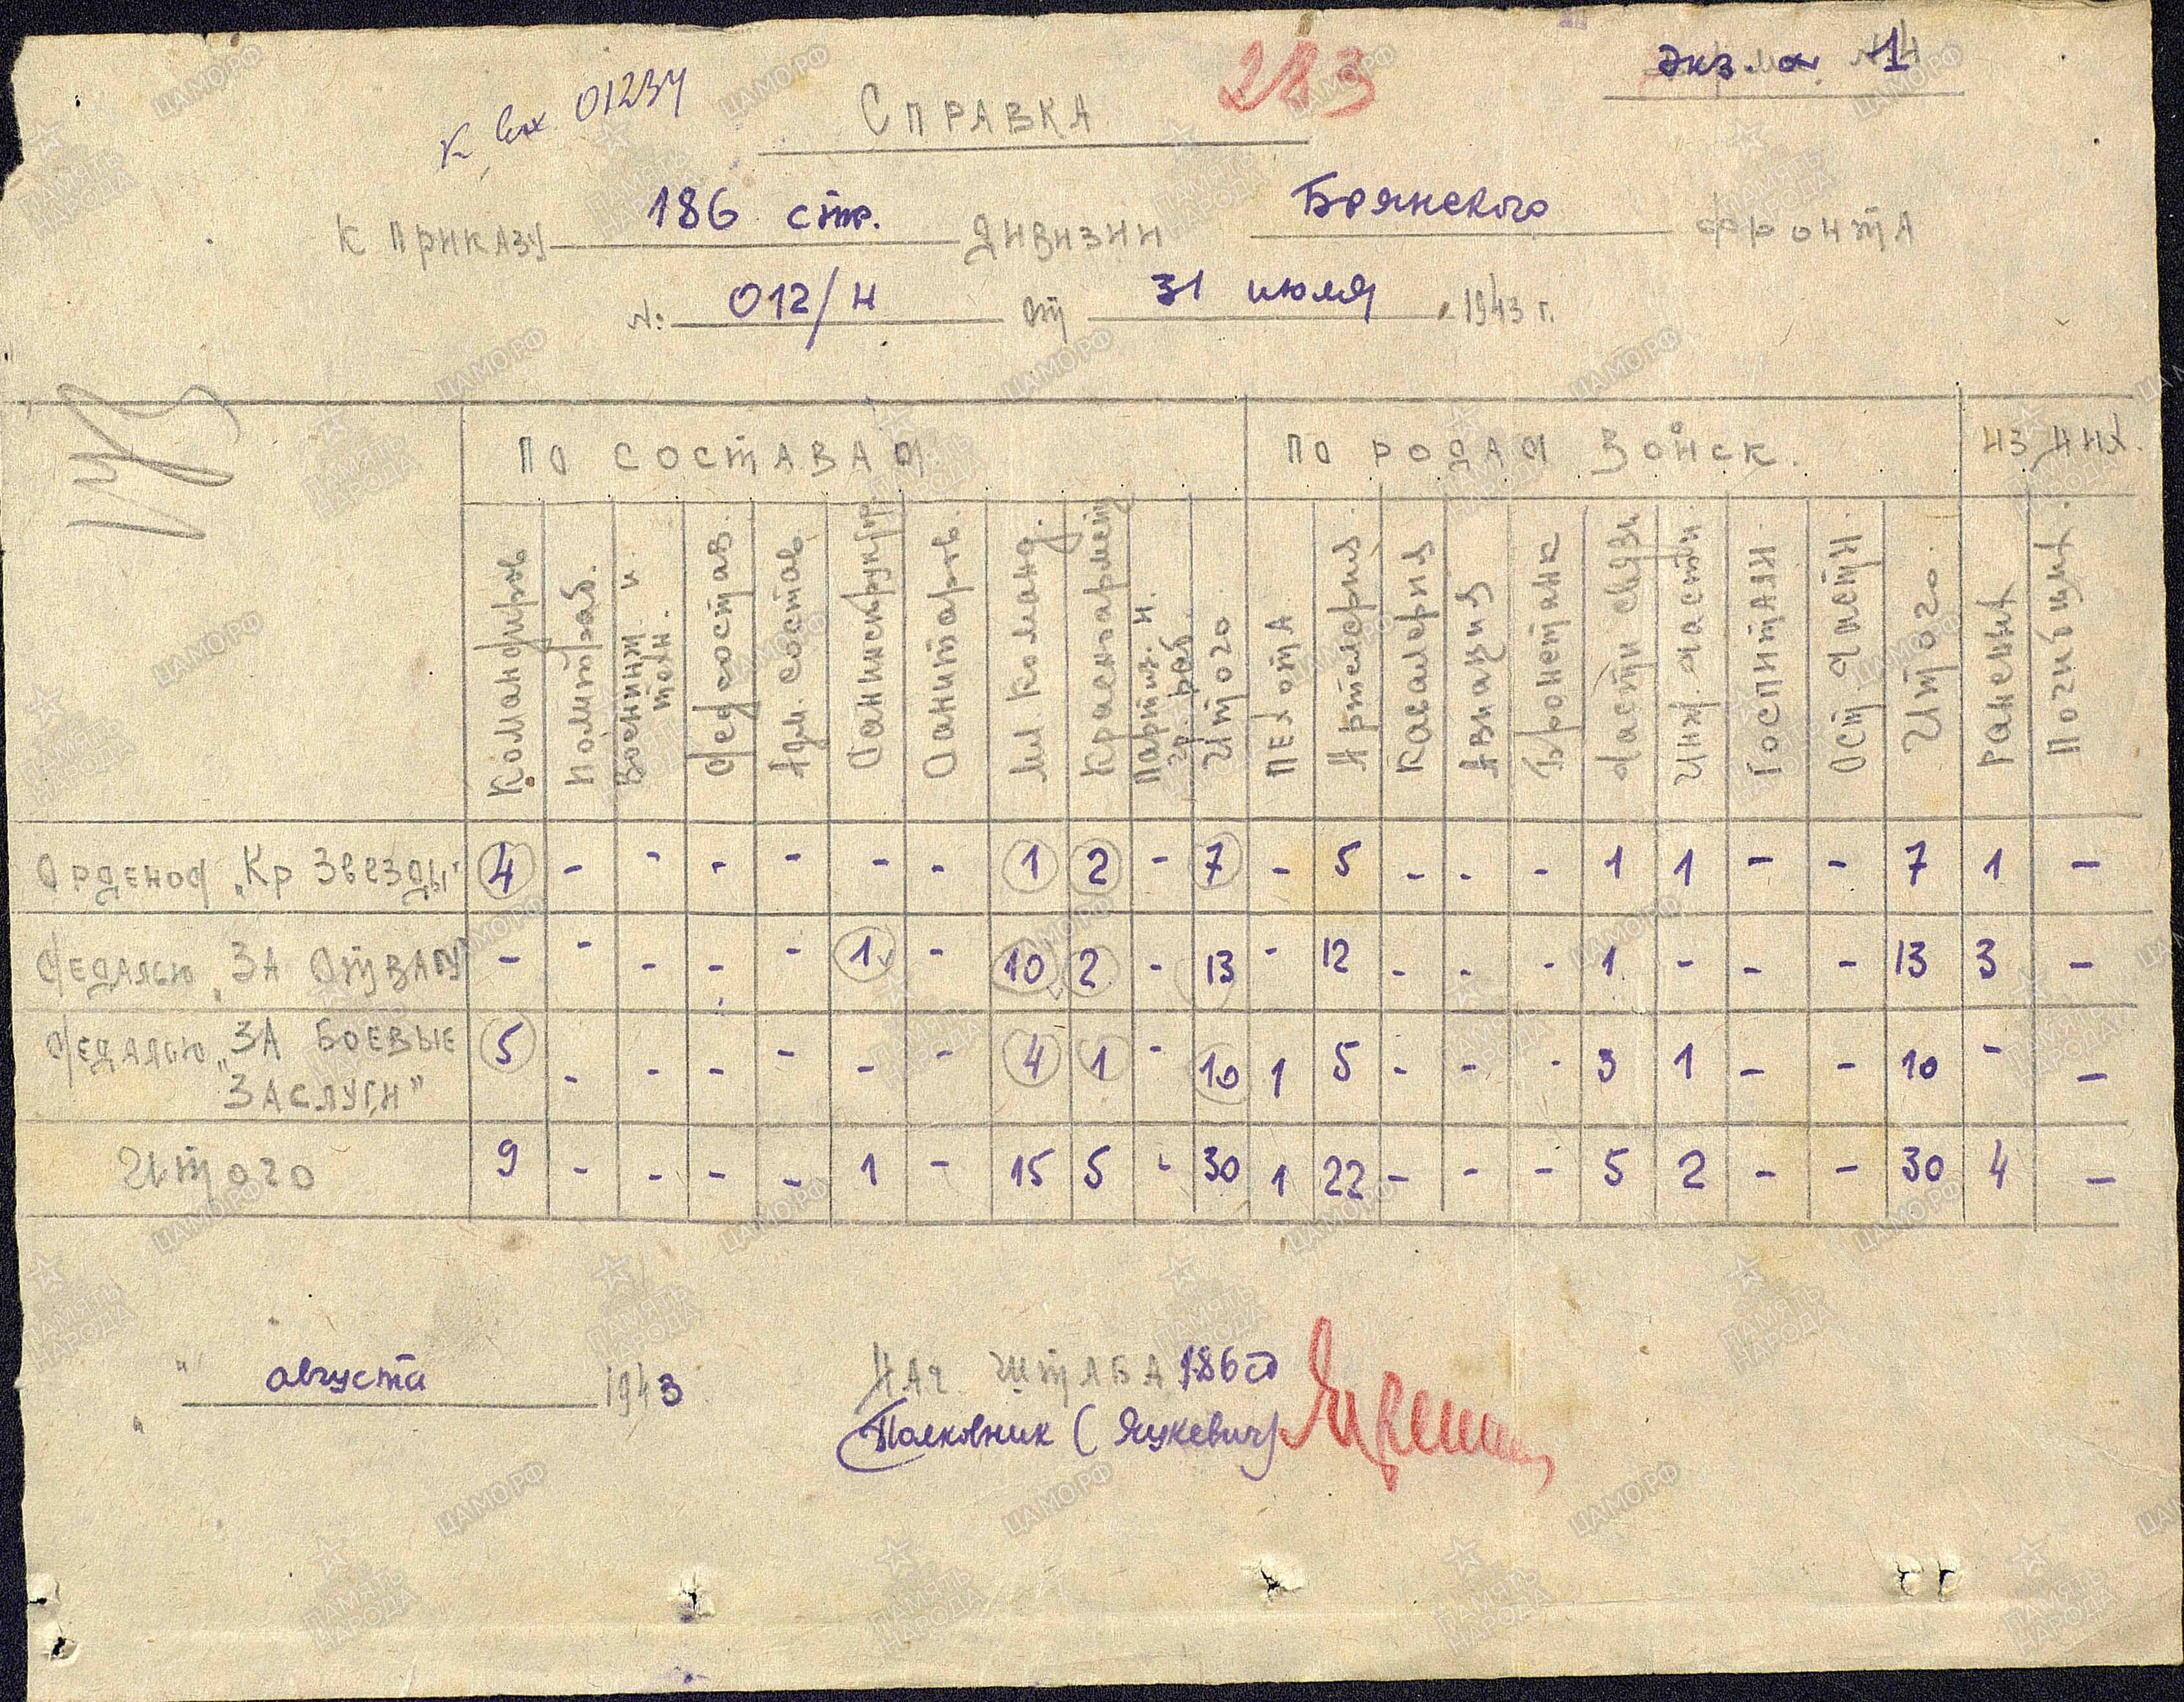 Экз. № 1
283
К вх 01234
Справка
к приказу 186 стр. дивизии Брянского фронта
№ 012/н от 31 июля 1943 г.
по составам по родам войск. из них.
Командиров Политраб. Военинж. и техн. Мед состав. Адм. состав Санинструкт. Санитаров. Мл. команд. Красноармейц Партиз. и гр. раб. Итого Пехота Артелерия. Кавалерия Авиация Бронетанк Части связи Инж. части. Госпитали. Ост. части. Итого. Раненых Погибших.
Орденом „Кр Звезды" 4 - - - - - - 1 2 - 7 - 5 - - - 1 1 - - 7 1 -
Медалью „За Отвагу" - - - - - 1 - 10 2 - 13 - 12 - - - 1 - - - 13 3 -
Медалью „За боевые заслуги" 5 - - - - - - 4 1 - 10 1 5 - - - 3 1 - - 10 - -
Итого 9 - - - - 1 - 15 5 - 30 1 22 - - - 5 2 - - 30 4 -
" августа 1943
Нач штаба 186 сд
Полковник (Яцкевич)